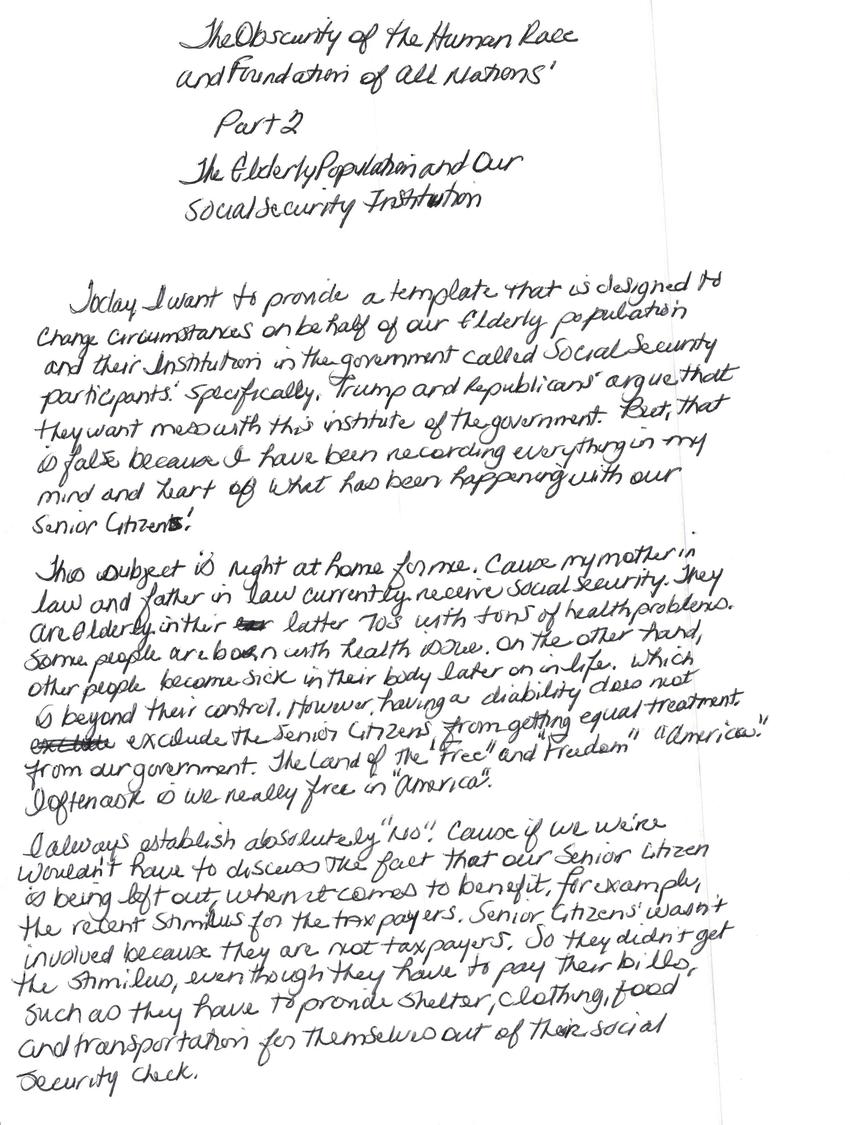 The Obscurity of the Human Race
and Foundation of All Nations'
Part 2
The Elderly Population and Our
Social Security Institution
Today I want to provide a template that is designed to
Change circumstances on behalf of our Elderly population
and their Institution in the government called Social Security
participants. Specifically, Trump and Republicans' argue that
they want mess with this institute of the government. But, that
is false because I have been recording everything in my
mind and heart of what has been happening with our
Senior Citizens!
This subject is right at home for me. Cause my mother in
law and father in law currently receive Social Security. They
are Elderly in their latter 70s with tons of health problems.
Some people are born with health issue. On the other hand,
other people become sick in their body later on in life. Which
is beyond their control. However, having a diability does not
exclude the Senior Citizens from getting equal treatment.
from our government. The Land of the "Free" and "Freedom" "America."
I often ask is we really free in "America".
I always establish absolutely "No". Cause if we we're
Wouldn't have to discuss the fact that our Senior Citizen
is being left out, when it comes to benefit, for example,
the recent Stimilus for the tax payers. Senior Citizens' wasn't
involved because they are not taxpayers. So they didn't get
the stimilus, even though they have to pay their bills,
Such as they have to provide shelter, clothing, food
and transportation for themselves out of their social
Security check.